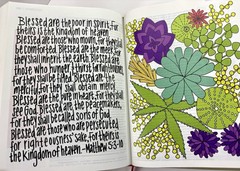 Blessed are the poor in spirit: For
theirs is the kingdom of heaven.
Blessed are those who mourn, for they shall
be comforted. Blessed are the meek: for
they shall inherit the earth. Blessed are
those who hunger & thirst for righteousness,
for they shall be filled. Blessed are the
merciful: for they shall obtain mercy.
Blessed are the pure in heart: for they shall
see God. Blessed are the peacemakers,
for they shall be called sons of God.
Blessed are those who are persecuted
for righteousness' sake, for theirs is
the kingdom of heaven. -Matthew 5:3-10